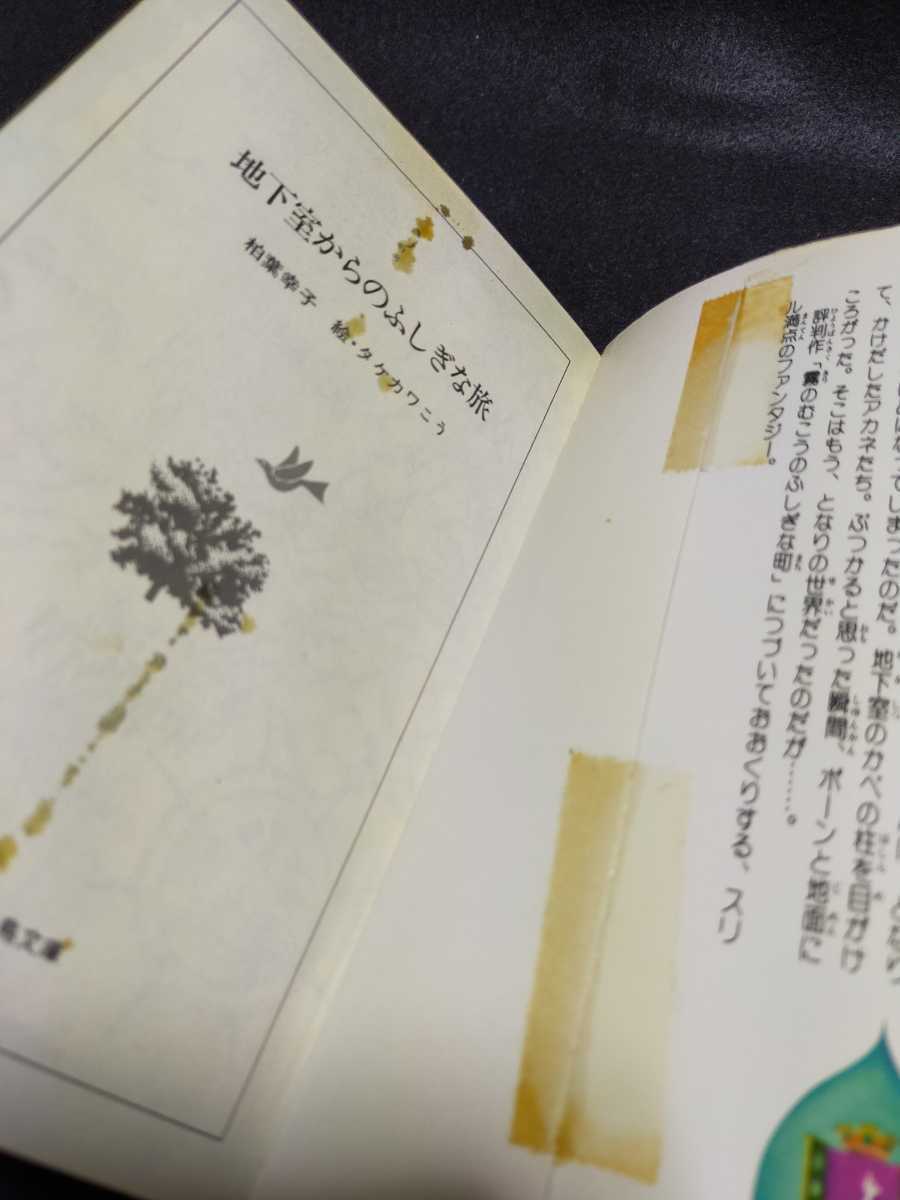 地下室からのふしぎな旅
柏葉幸子 絵・タケカワこう
文庫
てしまったのだ。地下室のかべの柱を目がけ
て、かけだしたアカネたち。ぶつかると思った瞬間、ボーンと地面に
ころがった。そこはもう、となりの世界だったのだが……。
評判作「霧のむこうのふしぎな町」につづいておおくりする、スリ
ル満点のファンタジー。